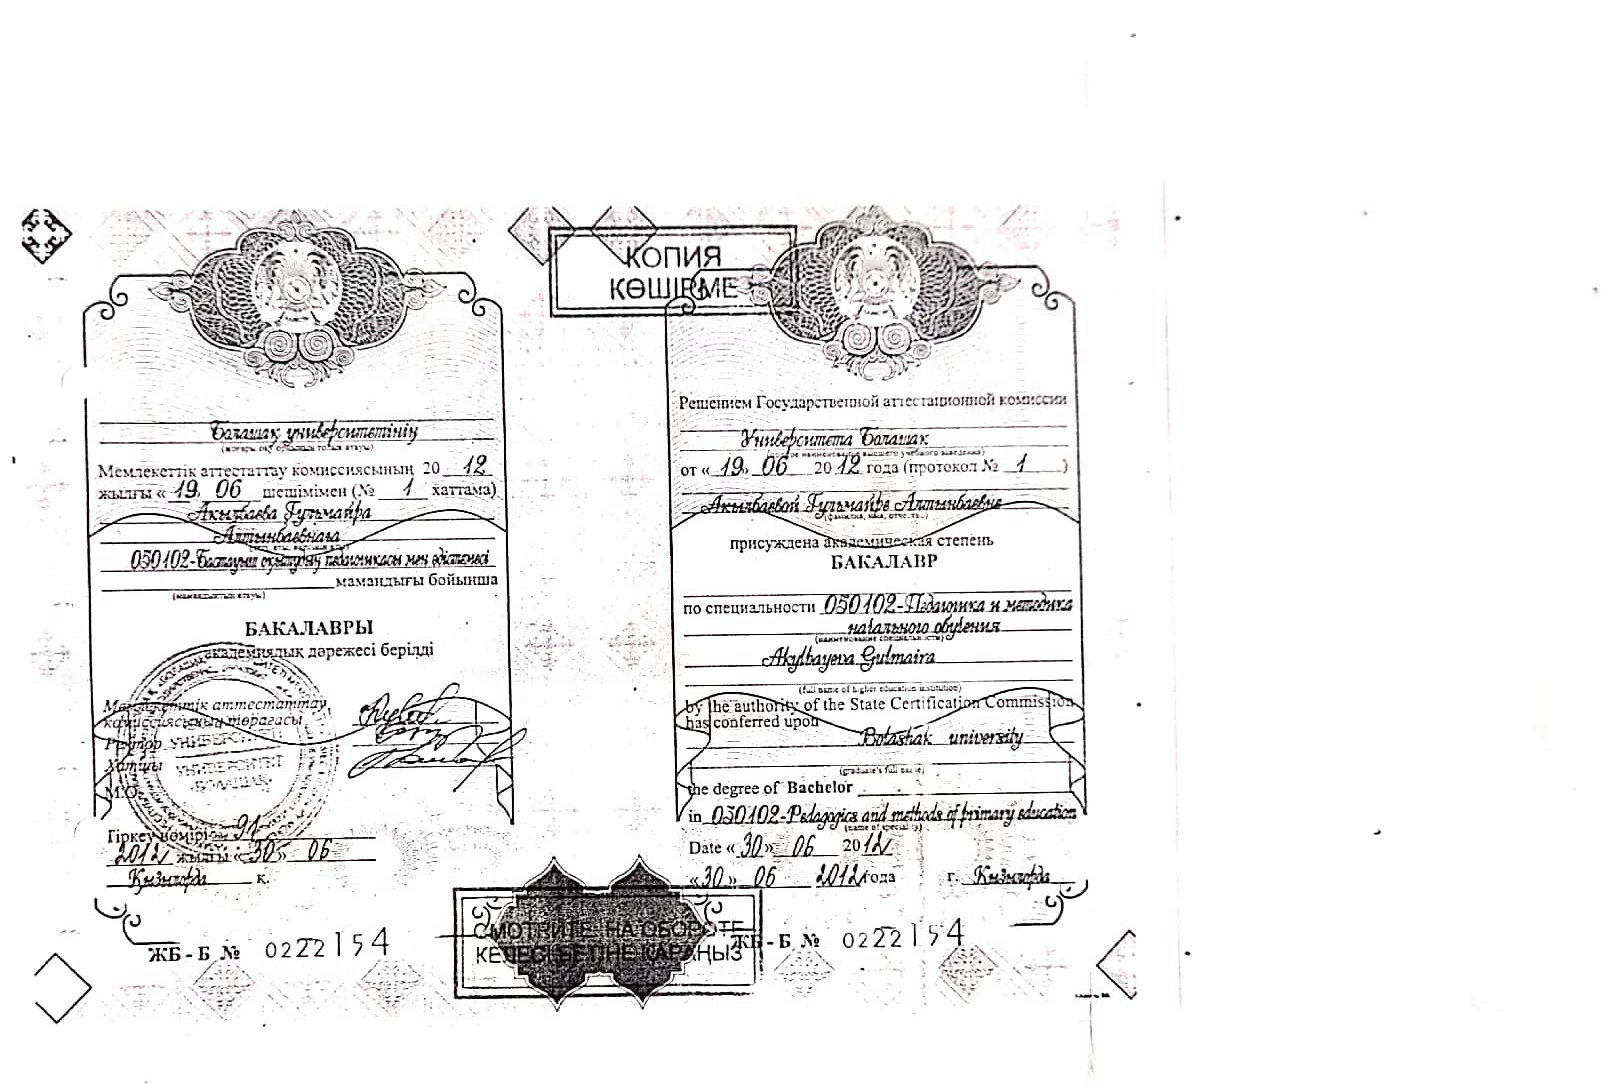 КОПИЯ
КӨШІРМЕ
Болашақ университетінің
(жоғары оқу орнының толық атауы)
Мемлекеттік аттестаттау комиссиясының 20 12
жылғы « 19 » 06 шешімімен (№ 1 хаттама)
Акылбаева Гульмайра
Алтынбаевнаға
050102-Бастауыш оқытудың педагогикасы мен әдістемесі
мамандығы бойынша
(мамандықтың атауы)
БАКАЛАВРЫ
академиялық дәрежесі берілді
Мемлекеттік аттестаттау
комиссиясының төрағасы
Ректор
Хатшы
М.О.
УНИВЕРСИТЕТ
"БОЛАШАК"
Тіркеу нөмірі 91
2012 жылғы « 30 » 06
Қызылорда қ.
ЖБ - Б № 0222154
Решением Государственной аттестационной комиссии
Университета Болашак
(полное наименование высшего учебного заведения)
от « 19 » 06 20 12 года (протокол № 1 )
Акылбаевой Гульмайре Алтынбаевне
(фамилия, имя, отчество)
присуждена академическая степень
БАКАЛАВР
по специальности 050102-Педагогика и методика
начального обучения
(наименование специальности)
Akylbayeva Gulmaira
(full name of higher education institution)
by the authority of the State Certification Commission
has conferred upon
Bolashak university
(graduate's full name)
the degree of Bachelor
in 050102-Pedagogics and methods of primary education
(name of specialty)
Date « 30 » 06 2012
« 30 » 06 2012 года г. Кызылорда
ЖБ - Б № 0222154
СМОТРИТЕ НА ОБОРОТЕ
КЕЛЕСІ БЕТІНЕ ҚАРАҢЫЗ